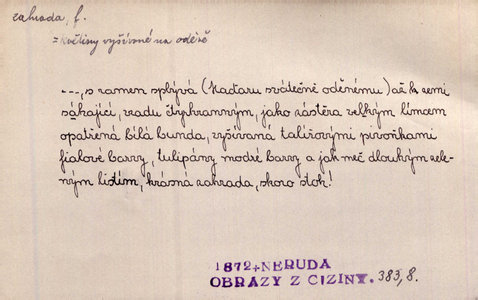 zahrada, f.
= květiny vyšívané na oděvě
---, s ramen splývá (Maďaru svátečně oděnému) až k zemi
sáhající, vzadu čtyřhranným, jako zástěra velkým límcem
opatřená bílá bunda, vyšívaná talířovými pivoňkami
fialové barvy, tulipány modré barvy a jak meč dlouhým zele-
ným listím, krásná zahrada, skoro stoh!
1872 + NERUDA
OBRAZY Z CIZINY. 383,8.